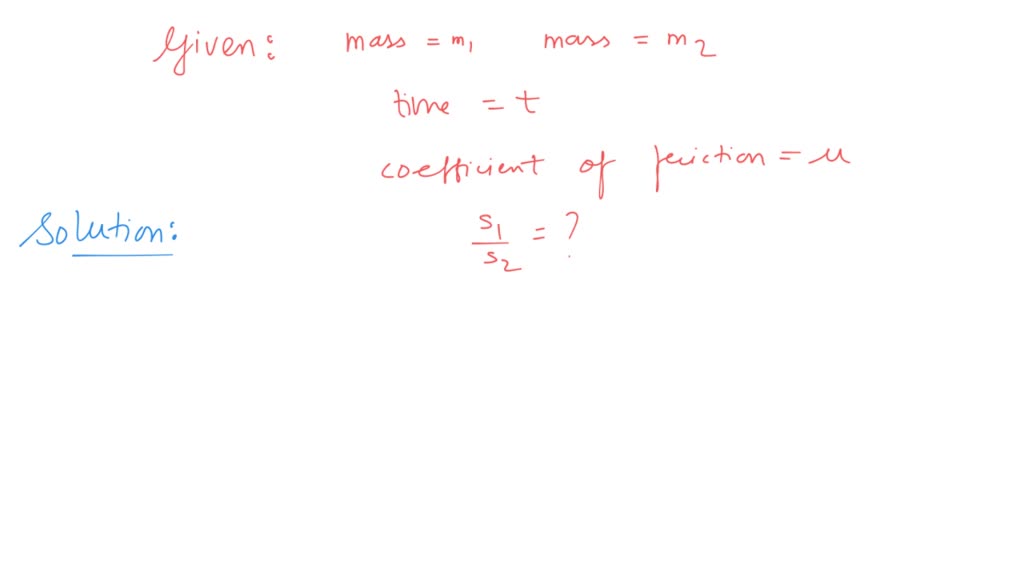 Given: mass = m₁ mass = m₂
time = t
coefficient of friction = μ
Solution: s₁/s₂ = ?